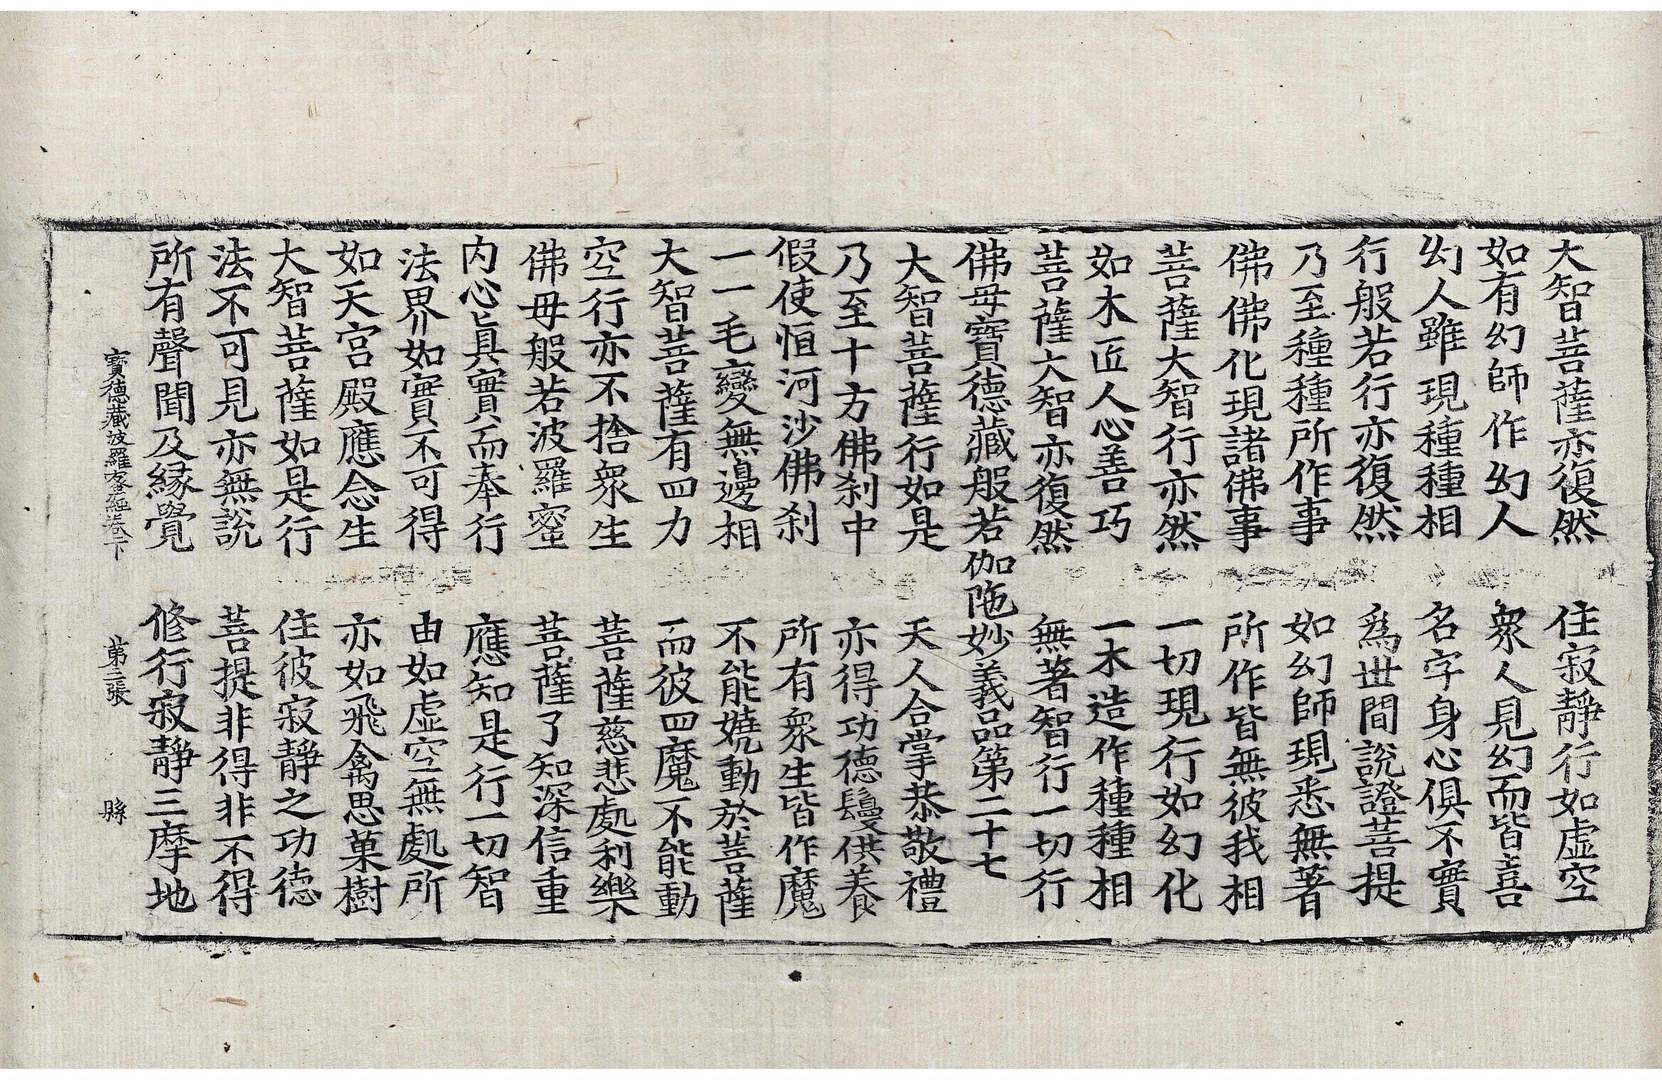 大智菩薩亦復然　住寂靜行如虛空
如有幻師作幻人　衆人見幻而皆喜
幻人雖現種種相　名字身心俱不實
行般若行亦復然　爲世間說證菩提
乃至種種所作事　如幻師現悉無著
佛佛化現諸佛事　所作皆無彼我相
菩薩大智行亦然　一切現行如幻化
如木匠人心善巧　一木造作種種相
菩薩大智亦復然　無著智行一切行
佛母寶德藏般若伽陁妙義品第二十七
大智菩薩行如是　天人合掌恭敬禮
乃至十方佛刹中　亦得功德鬘供養
假使恒河沙佛刹　所有衆生皆作魔
一一毛變無邊相　不能嬈動於菩薩
大智菩薩有四力　而彼四魔不能動
空行亦不捨衆生　菩薩慈悲處利樂
佛母般若波羅蜜　菩薩了知深信重
內心眞實而奉行　應知是行一切智
法界如實不可得　由如虛空無處所
如天宮殿應念生　亦如飛禽思菓樹
大智菩薩如是行　住彼寂靜之功德
法不可見亦無說　菩提非得非不得
所有聲聞及緣覺　修行寂靜三摩地
寶德藏波羅蜜經卷下　第三張　縣